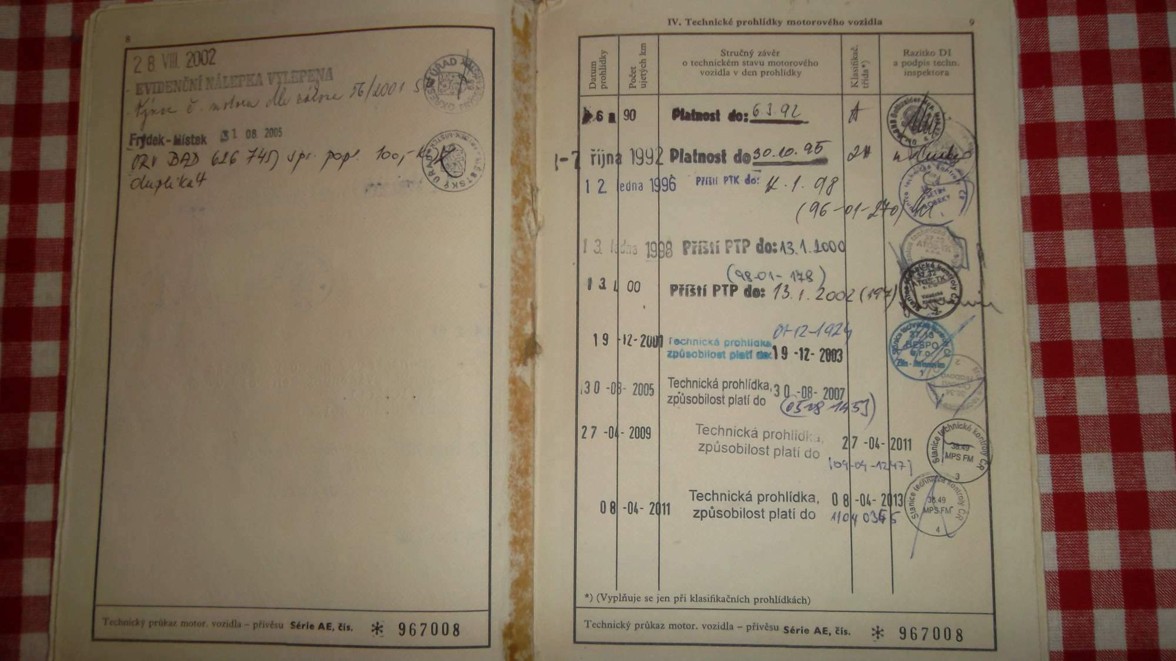 8
28 VIII. 2002
EVIDENČNÍ NÁLEPKA VYLEPENA
č. motoru dle zákona 56/2001 S
Frýdek-Místek 31 08 2005
ORV BAD 626745 spr. popl. 100,- Kč
duplikát
Technický průkaz motor. vozidla – přívěsu Série AE, čís. * 967008
IV. Technické prohlídky motorového vozidla 9
Datum prohlídky
Počet ujetých km
Stručný závěr
o technickém stavu motorového
vozidla v den prohlídky
Klasifikač. třída*)
Razítko DI
a podpis techn.
inspektora
90 Platnost do: 6 3. 92 A
října 1992 Platnost do 30.10.95
12 ledna 1996 Příští PTK do: 1. 98
(96-01-270)
13. ledna 1998 Příští PTP do: 13.1.2000
(98-01-178)
13. 1. 00 Příští PTP do: 13.1.2002 (197)
01-12-1924
19 -12- 2001 Technická prohlídka,
způsobilost platí do: 19 -12- 2003
30 -08- 2005 Technická prohlídka, 30 -08- 2007
způsobilost platí do
27 -04- 2009 Technická prohlídka,
způsobilost platí do 27 -04- 2011
(09-04-1247)
08 -04- 2011 Technická prohlídka, 08 -04- 2013
způsobilost platí do 11040365
Stanice technické kontroly ČR
38.49
MPS FM
3
Stanice technické kontroly ČR
38.49
MPS FM
4
*) (Vyplňuje se jen při klasifikačních prohlídkách)
Technický průkaz motor. vozidla – přívěsu Série AE, čís. * 967008